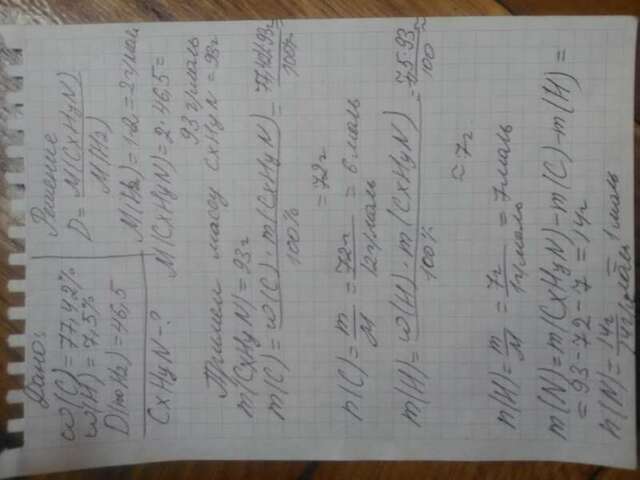 Дано:
ω(C) = 77,42%
ω(H) = 7,5%
D(по H2) = 46,5
CxHyN - ?
Решение
D = M(CxHyN)
M(H2)
M(H2) = 1·2 = 2 г/моль
M(CxHyN) = 2·46,5 =
93 г/моль
Примем массу CxHyN = 93г
m(CxHyN) = 93г
m(C) = ω(C)·m(CxHyN) = 77,42·93г
100% 100%
= 72г
n(C) = m = 72г = 6 моль
M 12г/моль
m(H) = ω(H)·m(CxHyN) = 7,5·93 ≈
100% 100
≈ 7г
n(H) = m = 7г = 7 моль
M 1г/моль
m(N) = m(CxHyN) - m(C) - m(H) =
= 93 - 72 - 7 = 14г
n(N) = 14г 1 моль
14г/моль